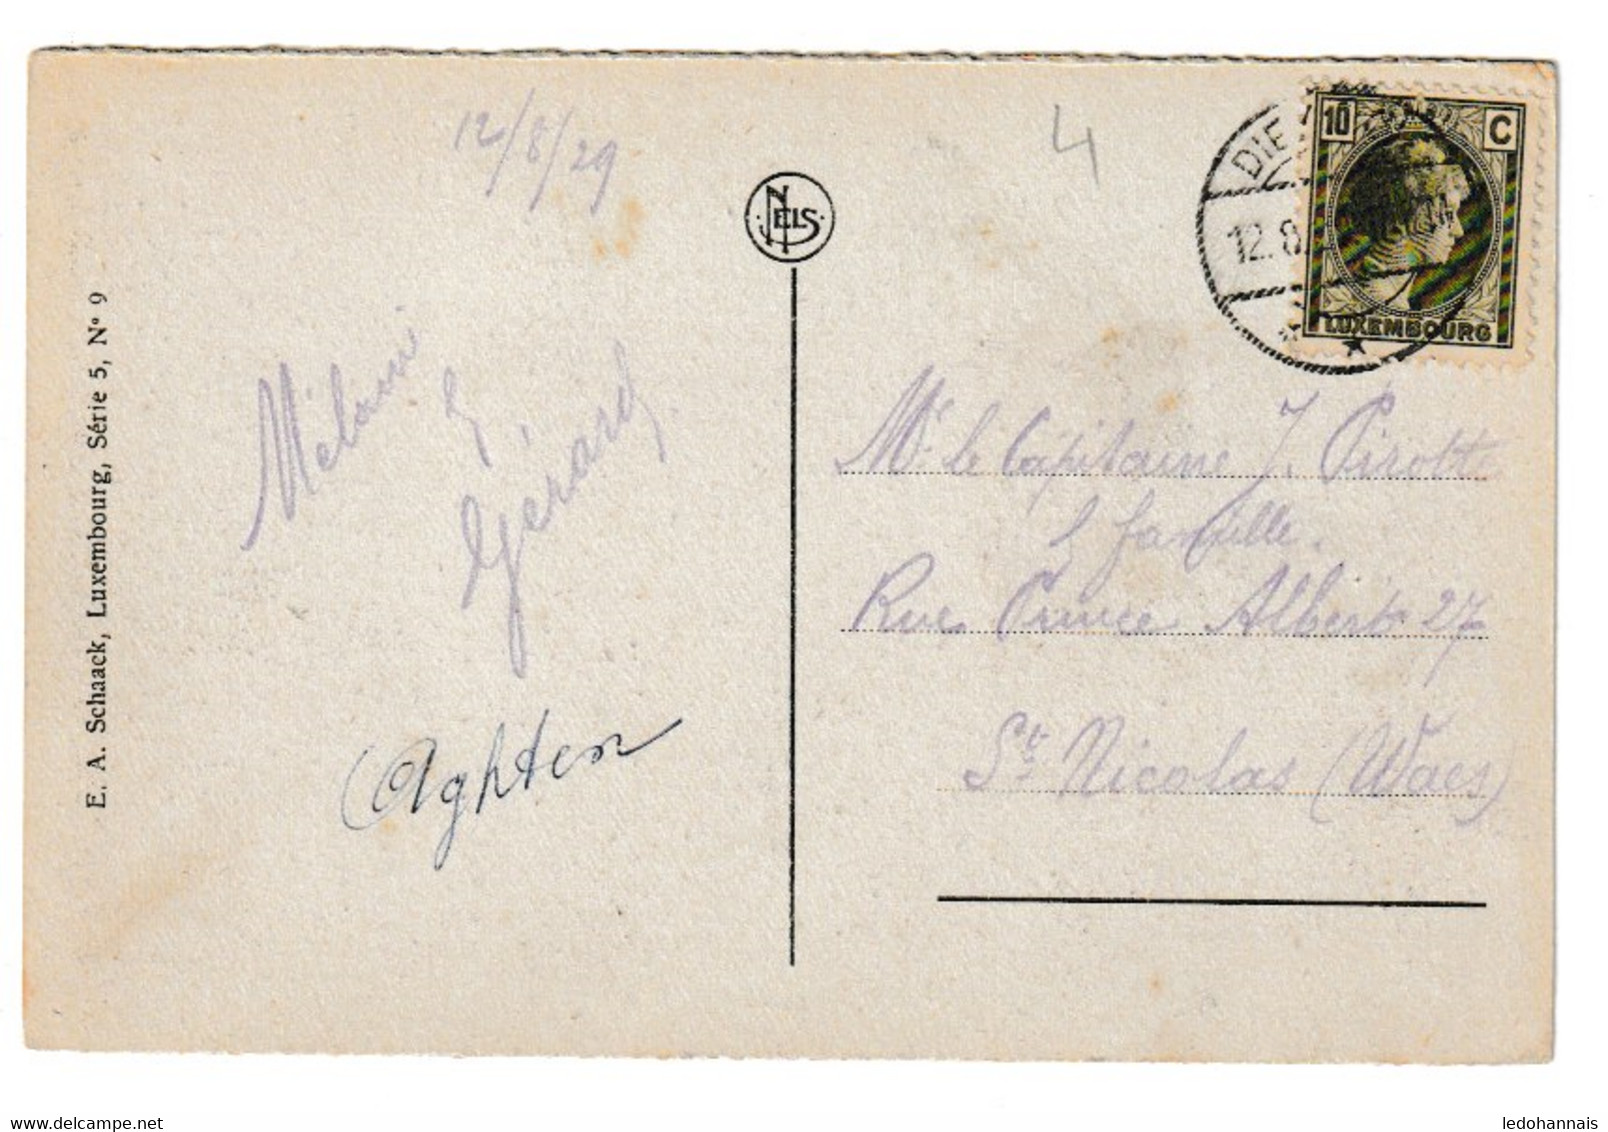 12/8/29
4
NELS
10 C
LUXEMBOURG
DIE
12.8.
E. A. Schaack, Luxembourg, Série 5, N° 9
Mélanie
&
Gérard.
Aghten
Mr. le Capitaine J. Pirotte
& famille.
Rue Prince Albert 27
St. Nicolas (Waes)
delcampe.net
ledohannais